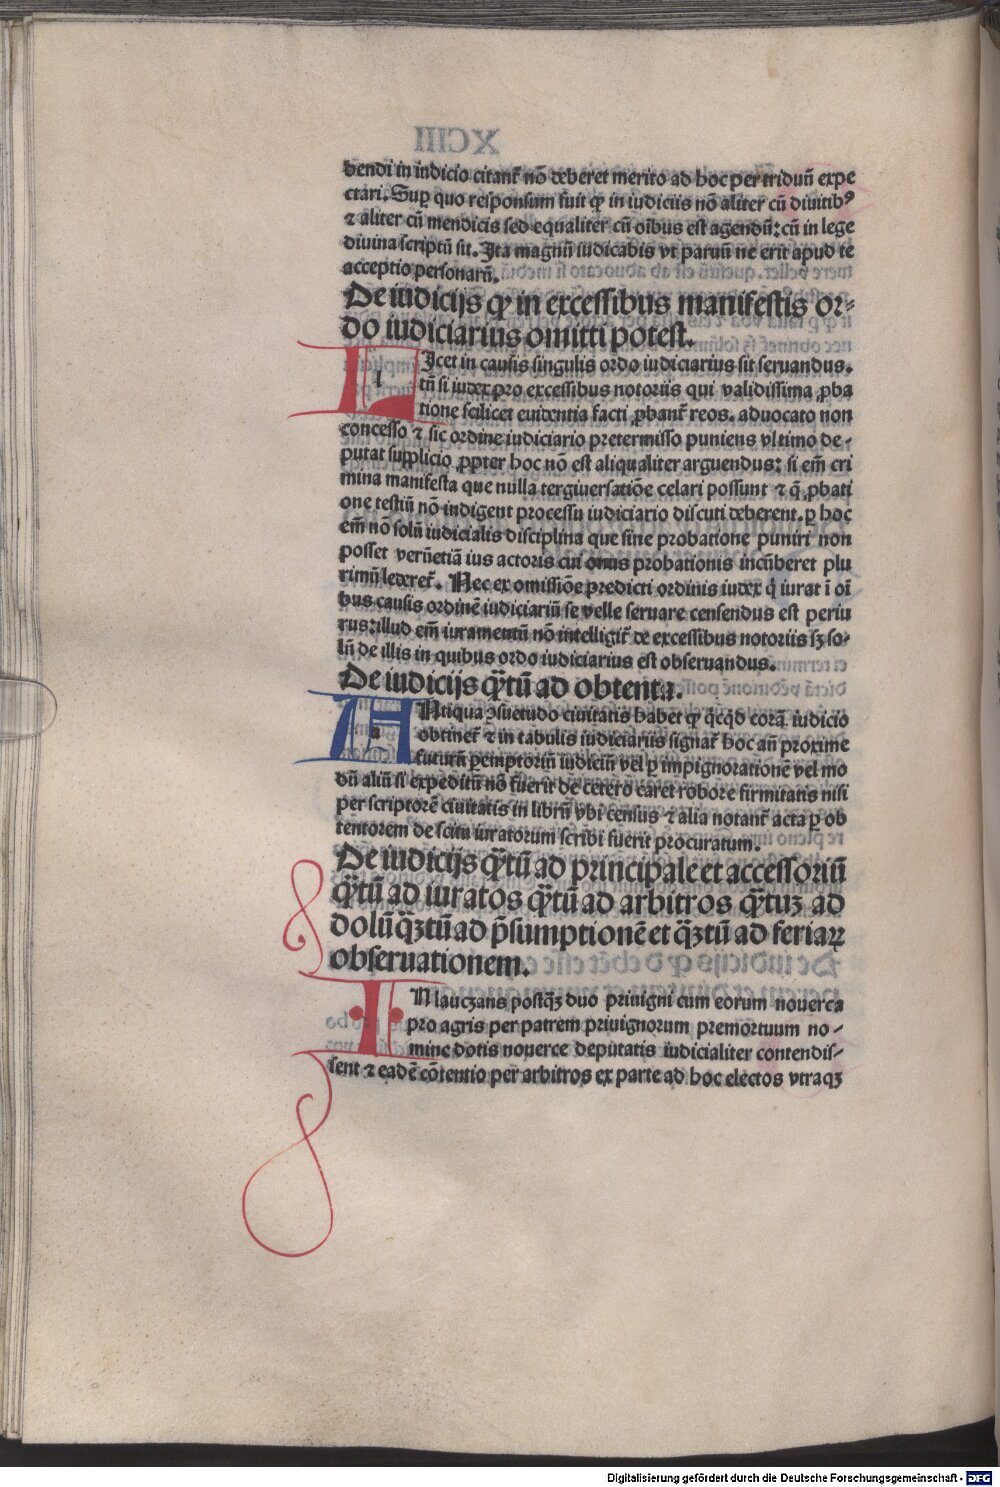 bendi in iudicio citant᷑ nō deberet merito ad hoc per triduū expe
ctari. Suꝑ quo responsum fuit ꝙ in iudiciis nō aliter cū diuitibꝰ
⁊ aliter cū mendicis sed equaliter cū oībus est agendū: cū in lege
diuina scriptū sit. Ita magnū iudicabis vt paruū ne erit apud te
acceptio personarū.
De iudicijs ꝙ in excessibus manifestis or⸗
do iudiciarius omitti potest.
LIcet in causis singulis ordo iudiciarius sit seruandus.
tn̄ si iudex pro excessibus notoriis qui validissima ꝓba
tione scilicet euidentia facti ꝓbant᷑ reos. aduocato non
concesso ⁊ sic ordine iudiciario pretermisso puniens vltimo de⸗
putat supplicio ꝓpter hoc nō est aliqualiter arguendus: si em̄ cri
mina manifesta que nulla tergiuersatiōe celari possunt ⁊ q̄ ꝓbati
one testiū nō indigent processu iudiciario discuti deberent. ꝑ hoc
em̄ nō solū iudicialis disciplina que sine probatione puniri non
posset verūetiā ius actoris cui onus probationis incūberet plu
rimū lederet᷑. Nec ex omissiōe predicti ordinis iudex q̇ iurat ī oī
bus causis ordinē iudiciariū se velle seruare censendus est periu
rus: illud em̄ iuramentū nō intelligit᷑ de excessibus notoriis sꝫ so⸗
lū de illis in quibus ordo iudiciarius est obseruandus.
De iudicijs qᷓtū ad obtenta.
ANtiqua ꝯsuetudo ciuitatis habet ꝙ q̇cq̇d corā iudicio
obtinet᷑ ⁊ in tabulis iudiciariis signat᷑ hoc an̄ proxime
futurū ꝑemptoriū iudiciū vel ꝑ impignorationē vel mo
dū aliū si expeditū nō fuerit de cetero caret robore firmitatis nisi
per scriptorē ciuitatis in librū vbi census ⁊ alia notant᷑ acta ꝑ ob
tentorem de scitu iuratorum scribi fuerit procuratum.
De iudicijs qᷓtū ad principale et accessoriū
qᷓtū ad iuratos qᷓtū ad arbitros qᷓtuꝫ ad
dolū qᷓꝫtū ad p̄sumptionē et qᷓꝫtū ad feriaꝝ
obseruationem.
IN lauczans postqᷓꝫ duo priuigni cum eorum nouerca
pro agris per patrem priuignorum premortuum no⸗
mine dotis nouerce deputatis iudicialiter contendis⸗
sent ⁊ eadē cōtentio per arbitros ex parte ad hoc electos vtraqꝫ
Digitalisierung gefördert durch die Deutsche Forschungsgemeinschaft - DFG